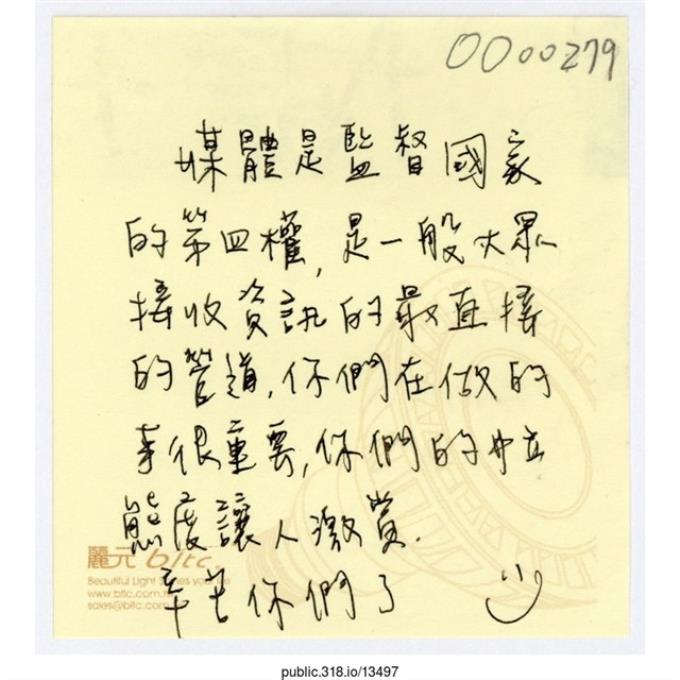 0000279
媒體是監督國家
的第四權,是一般大眾
接收資訊的最直接
的管道,你們在做的
事很重要,你們的中立
態度讓人激賞.
辛苦你們了
麗元 bltc.
Beautiful Light
www.bltc.com
sales@bltc.com
public.318.io/13497